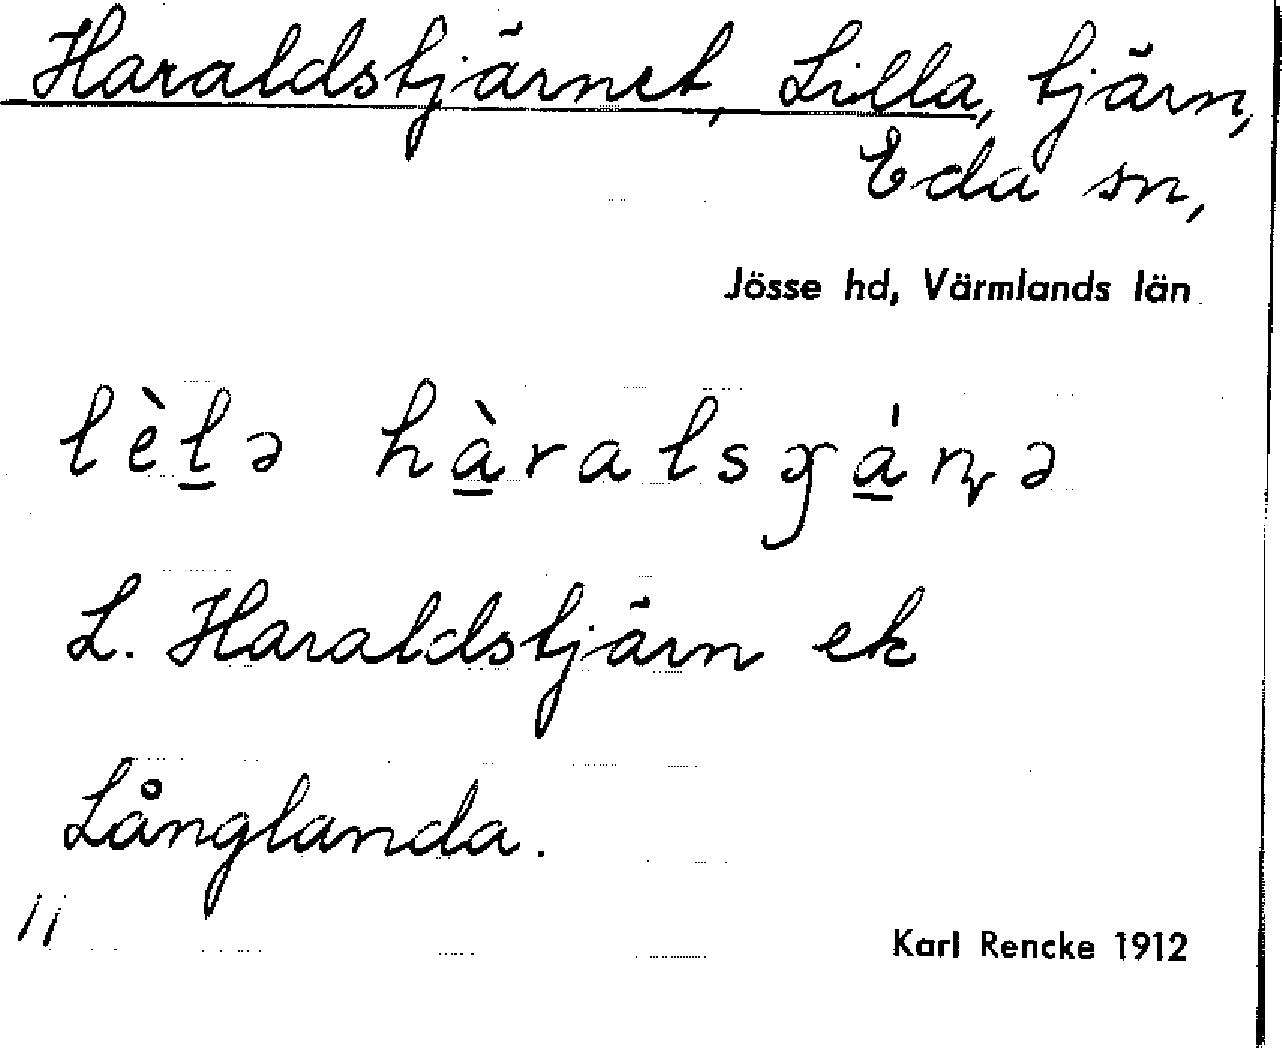 Haraldstjärnet, Lilla, tjärn,
Eda sn,
Jösse hd, Värmlands län
lèl̲ə hà̲ralsɟá̲ɳə
L. Haraldstjärn ek
Långlanda.
Karl Rencke 1912